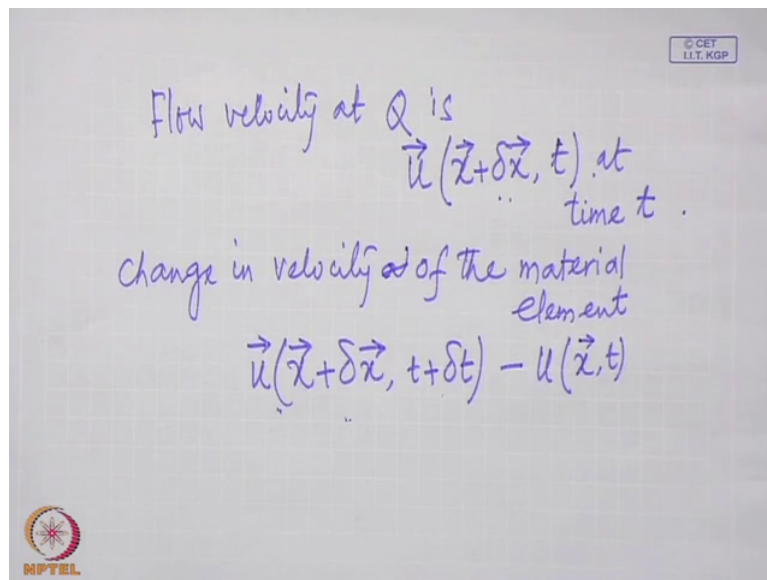 © CET
I.I.T. KGP
Flow velocity at Q is
u⃗(x⃗+δx⃗, t) at
time t.
Change in velocity of the material
element
u⃗(x⃗+δx⃗, t+δt) − u(x⃗,t)
NPTEL